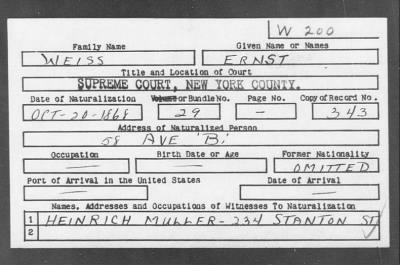 W 200
Family Name Given Name or Names
WEISS ERNST
Title and Location of Court
SUPREME COURT, NEW YORK COUNTY.
Date of Naturalization Volume or Bundle No. Page No. Copy of Record No.
OCT-20-1868 29 — 343
Address of Naturalized Person
58 AVE 'B'
Occupation Birth Date or Age Former Nationality
— — OMITTED
Port of Arrival in the United States Date of Arrival
— —
Names, Addresses and Occupations of Witnesses To Naturalization
1 HEINRICH MULLER-234 STANTON ST
2